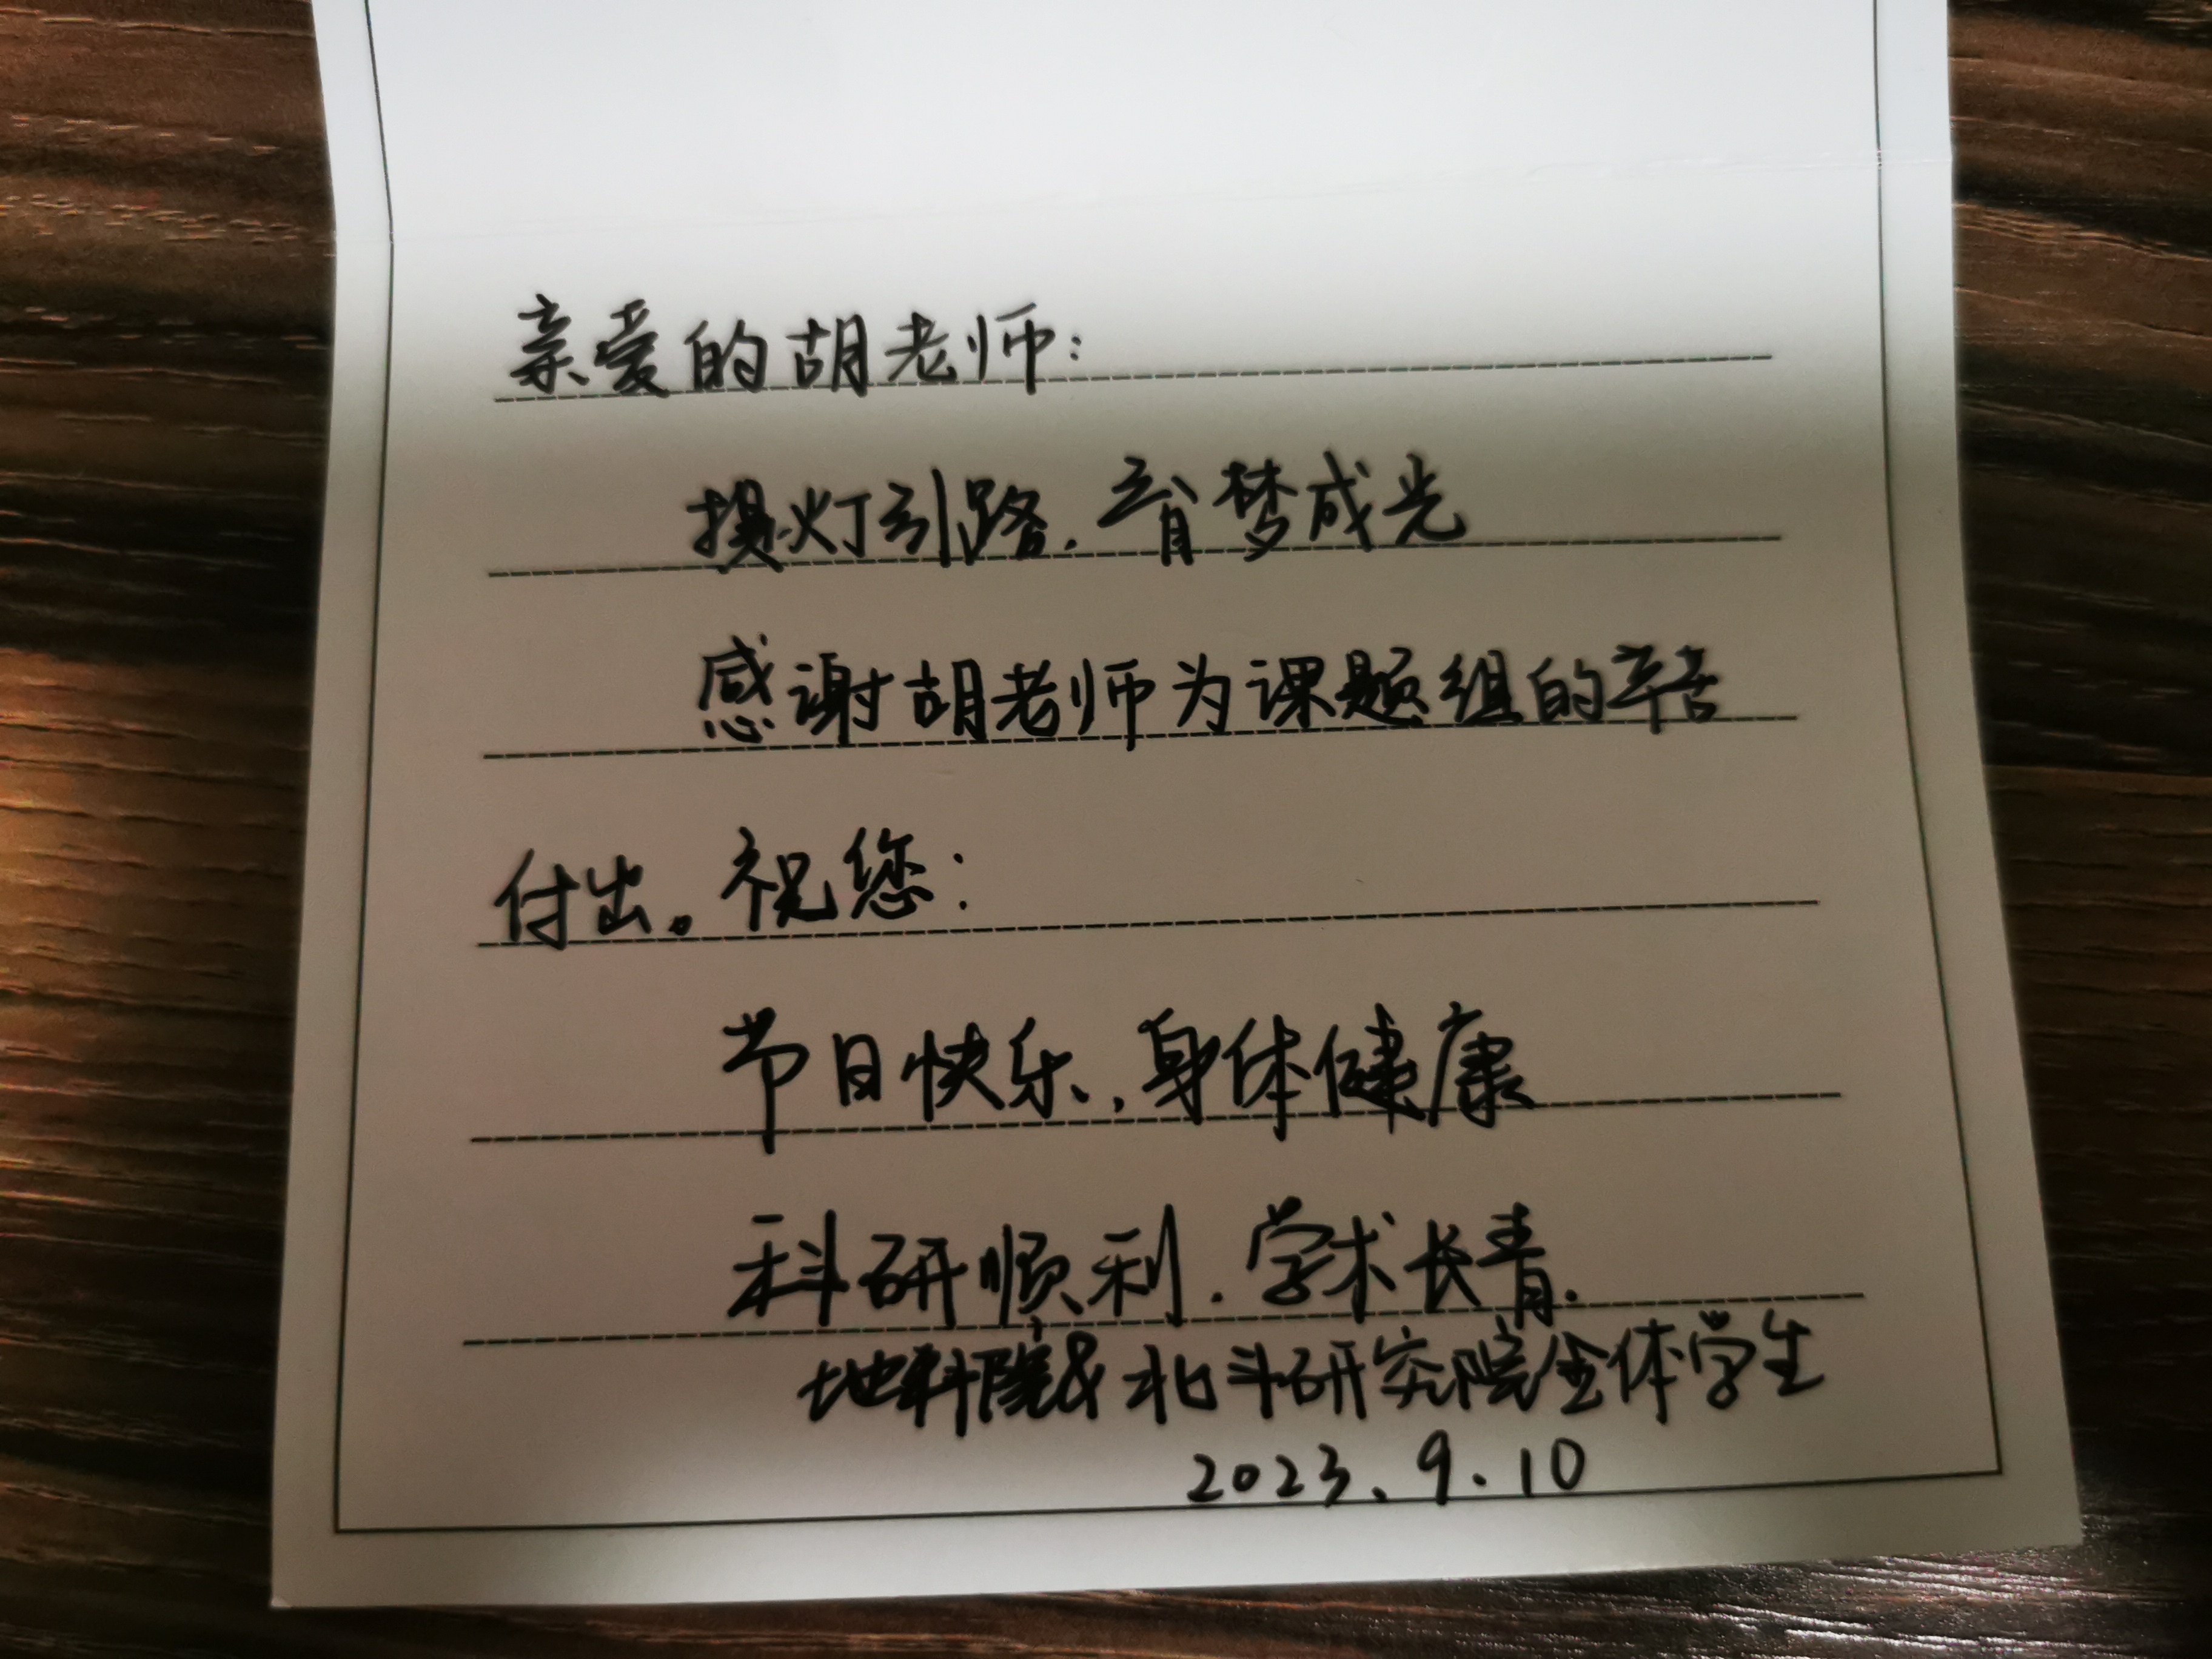 亲爱的胡老师：
提灯引路，育梦成光
感谢胡老师为课题组的辛苦
付出。祝您：
节日快乐，身体健康
科研顺利，学术长青。
地科院&北斗研究院全体学生
2023.9.10